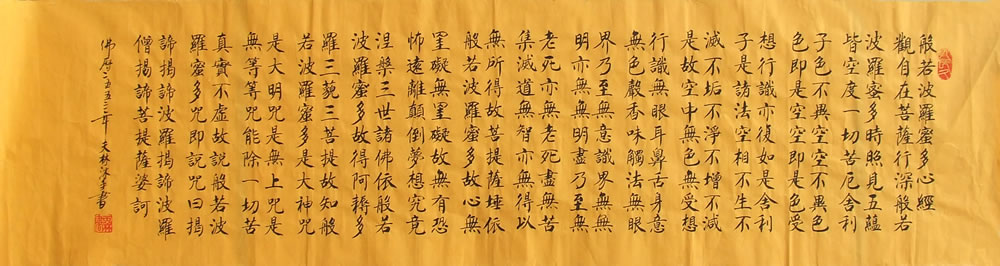 般若波羅蜜多心經
觀自在菩薩行深般若
波羅蜜多時照見五蘊
皆空度一切苦厄舍利
子色不異空空不異色
色即是空空即是色受
想行識亦復如是舍利
子是諸法空相不生不
滅不垢不淨不增不減
是故空中無色無受想
行識無眼耳鼻舌身意
無色聲香味觸法無眼
界乃至無意識界無無
明亦無無明盡乃至無
老死亦無老死盡無苦
集滅道無智亦無得以
無所得故菩提薩埵依
般若波羅蜜多故心無
罣礙無罣礙故無有恐
怖遠離顛倒夢想究竟
涅槃三世諸佛依般若
波羅蜜多故得阿耨多
羅三藐三菩提故知般
若波羅蜜多是大神咒
是大明咒是無上咒是
無等等咒能除一切苦
真實不虛故說般若波
羅蜜多咒即說咒曰揭
諦揭諦波羅揭諦波羅
僧揭諦菩提薩婆訶
佛曆二五五 年 書